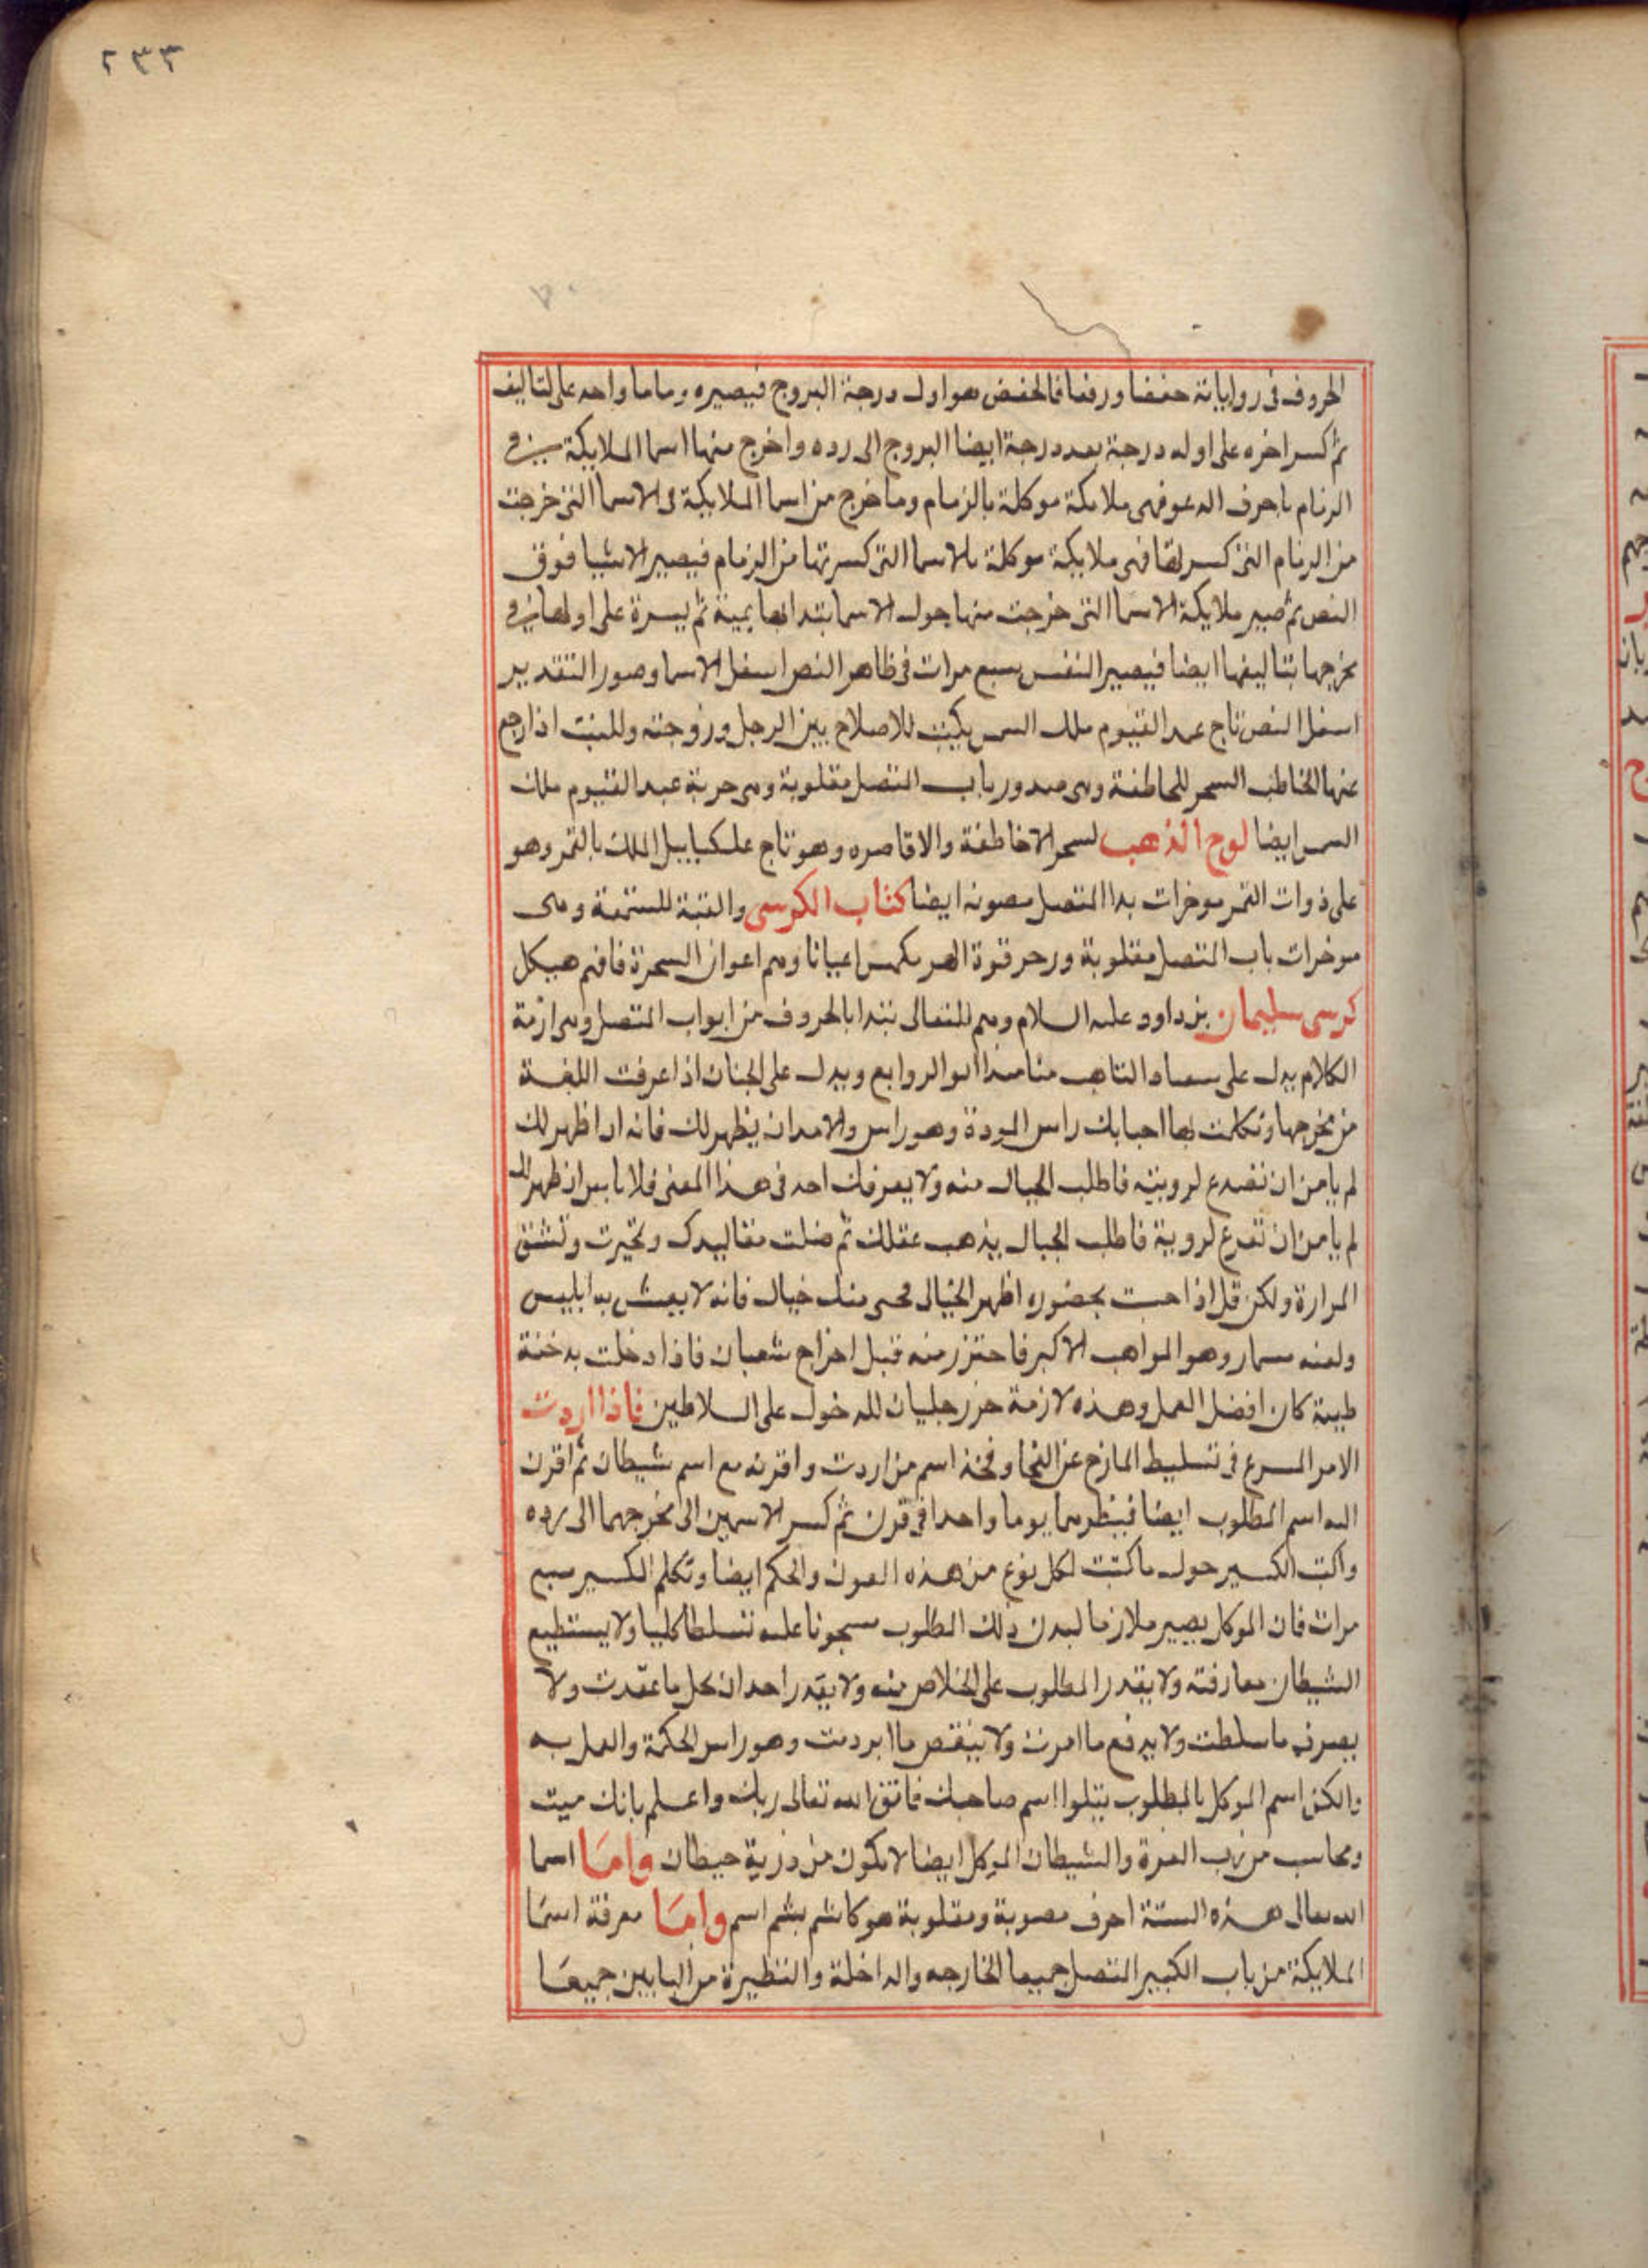 ٢٣٣
الحروف فى رواياته خفضا ورفعا فالخفض هو اول درجة البروج فيصيره وماما واحد على لتاليف
ثم كسر اخره على اوله درجة بعد درجة ايضا البروج الى رده واخرج منها اسما الملايكة
الزمام باحرف الدعو فهى ملايكة موكلة بالزمام وما خرج من اسما الملايكة فى الاسما التى خرجت
من الزمام التى كسر لها فهى ملايكة موكلة بالاسما التى كسرتها من الزمام فيصير الاشيا فوق
النص ثم صير ملايكة الاسما التى خرجت منها حول الاسما بتدابها يمينة ثم يسرة على اولها
مخرجها بتاليفها ايضا فيصير النفس سبع مرات فى ظاهر النص اسفل الاسما وصور التقدير
اسفل النص تاج عبد القيوم ملك الشمس يكتب للاصلاح بين الرجل وزوجته وللبنت اذا رجع
عنها الخاطب السحر للخاطفة وهى صدور باب المتصل مقلوبة وهى حربة عبد القيوم ملك
الشمس ايضا لوح الذهب لسحر الاخاطفة والاقاصره وهو تاج علكيابيل الملك بالقمر وهو
على ذوات القمر موخرات بدا المتصل مصونه ايضا كتاب الكرسى والقبة للستمة وهى
موخرات باب المتصل مقلوبة قوة اعيانا وهم اعوان السحرة فافهم هيكل
كرسى سليمان بن داود عليه السلام وهم للتعالى نبتدا بالحروف من ابواب المتصل وهى ازمة
الكلام يدل على منا الروابع ويدل على الجنان اذا عرفت اللغة
من مخرجها وتكلمت بها احبابك راس المودة وهو راس والامدان يظهر لك فانه اذا ظهر لك
لم يامن ان تصدع لرويته فاطلب الحيال منه ولا يعرفك احد فى هذا المعنى ظهر لك
لم يامن ان تفزع لروية فاطلب الجبال يذهب عقلك ثم ضلت مقاليدك وتحيرت وتشنق
المرارة ولكن قل اذا حضوره اظهر الخيالى منك خيال فانه لا يعبث به ابليس
ولعنه وهو المواهب الاكبر فاحترز منه قبل اخراج شعبان فاذا دخلت بدخنة
طيبة كان افضل العمل وهذه لازمة حرز جليان للدخول على السلاطين فاذا اردت
الامر المسرع فى تسليط المازح عن فخذ اسم من اردت واقرنه مع اسم شيطان ثم اقرن
اليه اسم المطلوب ايضا يوما واحدا فى قرن ثم كسر الاسمين الى مخرجهما الى رده
واكتب الكسير حول ما كتبت لكل نوع من هذه العون والحكم ايضا وتكلم الكسير سبع
مرات فان الموكل يصير ملازما لبدن ذلك المطلوب مسجونا عليه تسلطا كليا ولا يستطيع
الشيطان مفارقته ولا يقدر المطلوب على الخلاص منه ولا يقدر احد ان يحل ما عقدت ولا
يصرف ما سلطت ولا يدفع ما امرت ولا ينقص ما ابرمت وهو راس الحكمة والعمل به
والكن اسم الموكل بالمطلوب يتلوا اسم صاحبك فاتق الله تعالى ربك واعلم بانك ميت
ومحاسب من رب العزة والشيطان الموكل ايضا لا يكون من ذرية حيطان واما اسما
الله تعالى هذه الستة احرف مصوبة ومقلوبة هو كاشم بشم اسم واما معرفة اسما
الملايكة من باب الكبير المتصل جميعا الخارجه والداخلة والنظيرة من البابين جميعا